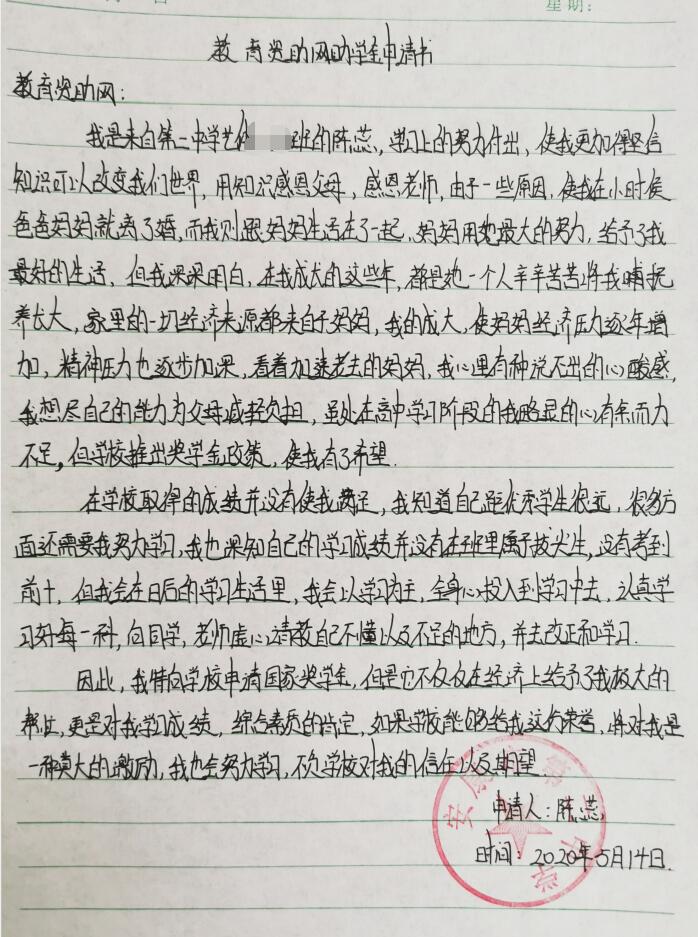 星期:
教育资助网助学金申请书
教育资助网:
我是来自第二中学艺体班的陈蕊,学习上的努力付出,使我更加得坚信
知识可以改变我们世界,用知识感恩父母,感恩老师,由于一些原因,使我在小时侯
爸爸妈妈就离了婚,而我则跟妈妈生活在了一起,妈妈用她最大的努力,给予了我
最好的生活,但我深深明白,在我成长的这些年,都是她一个人辛辛苦苦将我哺抚
养长大,家里的一切经济来源都来自于妈妈,我的成大,使妈妈经济压力逐年增
加,精神压力也逐步加深,看着加速老去的妈妈,我心里有种说不出的心酸感,
我想尽自己的能力为父母减轻负担,虽处在高中学习阶段的我略显的心有余而力
不足,但学校推出奖学金政策,使我有了希望.
在学校取得的成绩并没有使我满足,我知道自己距优秀学生很远,很多方
面还需要我努力学习,我也深知自己的学习成绩并没有在班里属于拔尖生,没有考到
前十,但我会在日后的学习生活里,我会以学习为主,全身心投入到学习中去,认真学
习好每一种,向同学,老师虚心请教自己不懂以及不足的地方,并去改正和学习.
因此,我特向学校申请国家奖学金,但是它不仅仅在经济上给予了我极大的
帮助,更是对我学习成绩,综合素质的肯定,如果学校能够给我这份荣誉,将对我是
一种莫大的激励,我也会努力学习,不负学校对我的信任以及期望.
申请人:陈蕊
时间:2020年5月14日.
安康市第二中学